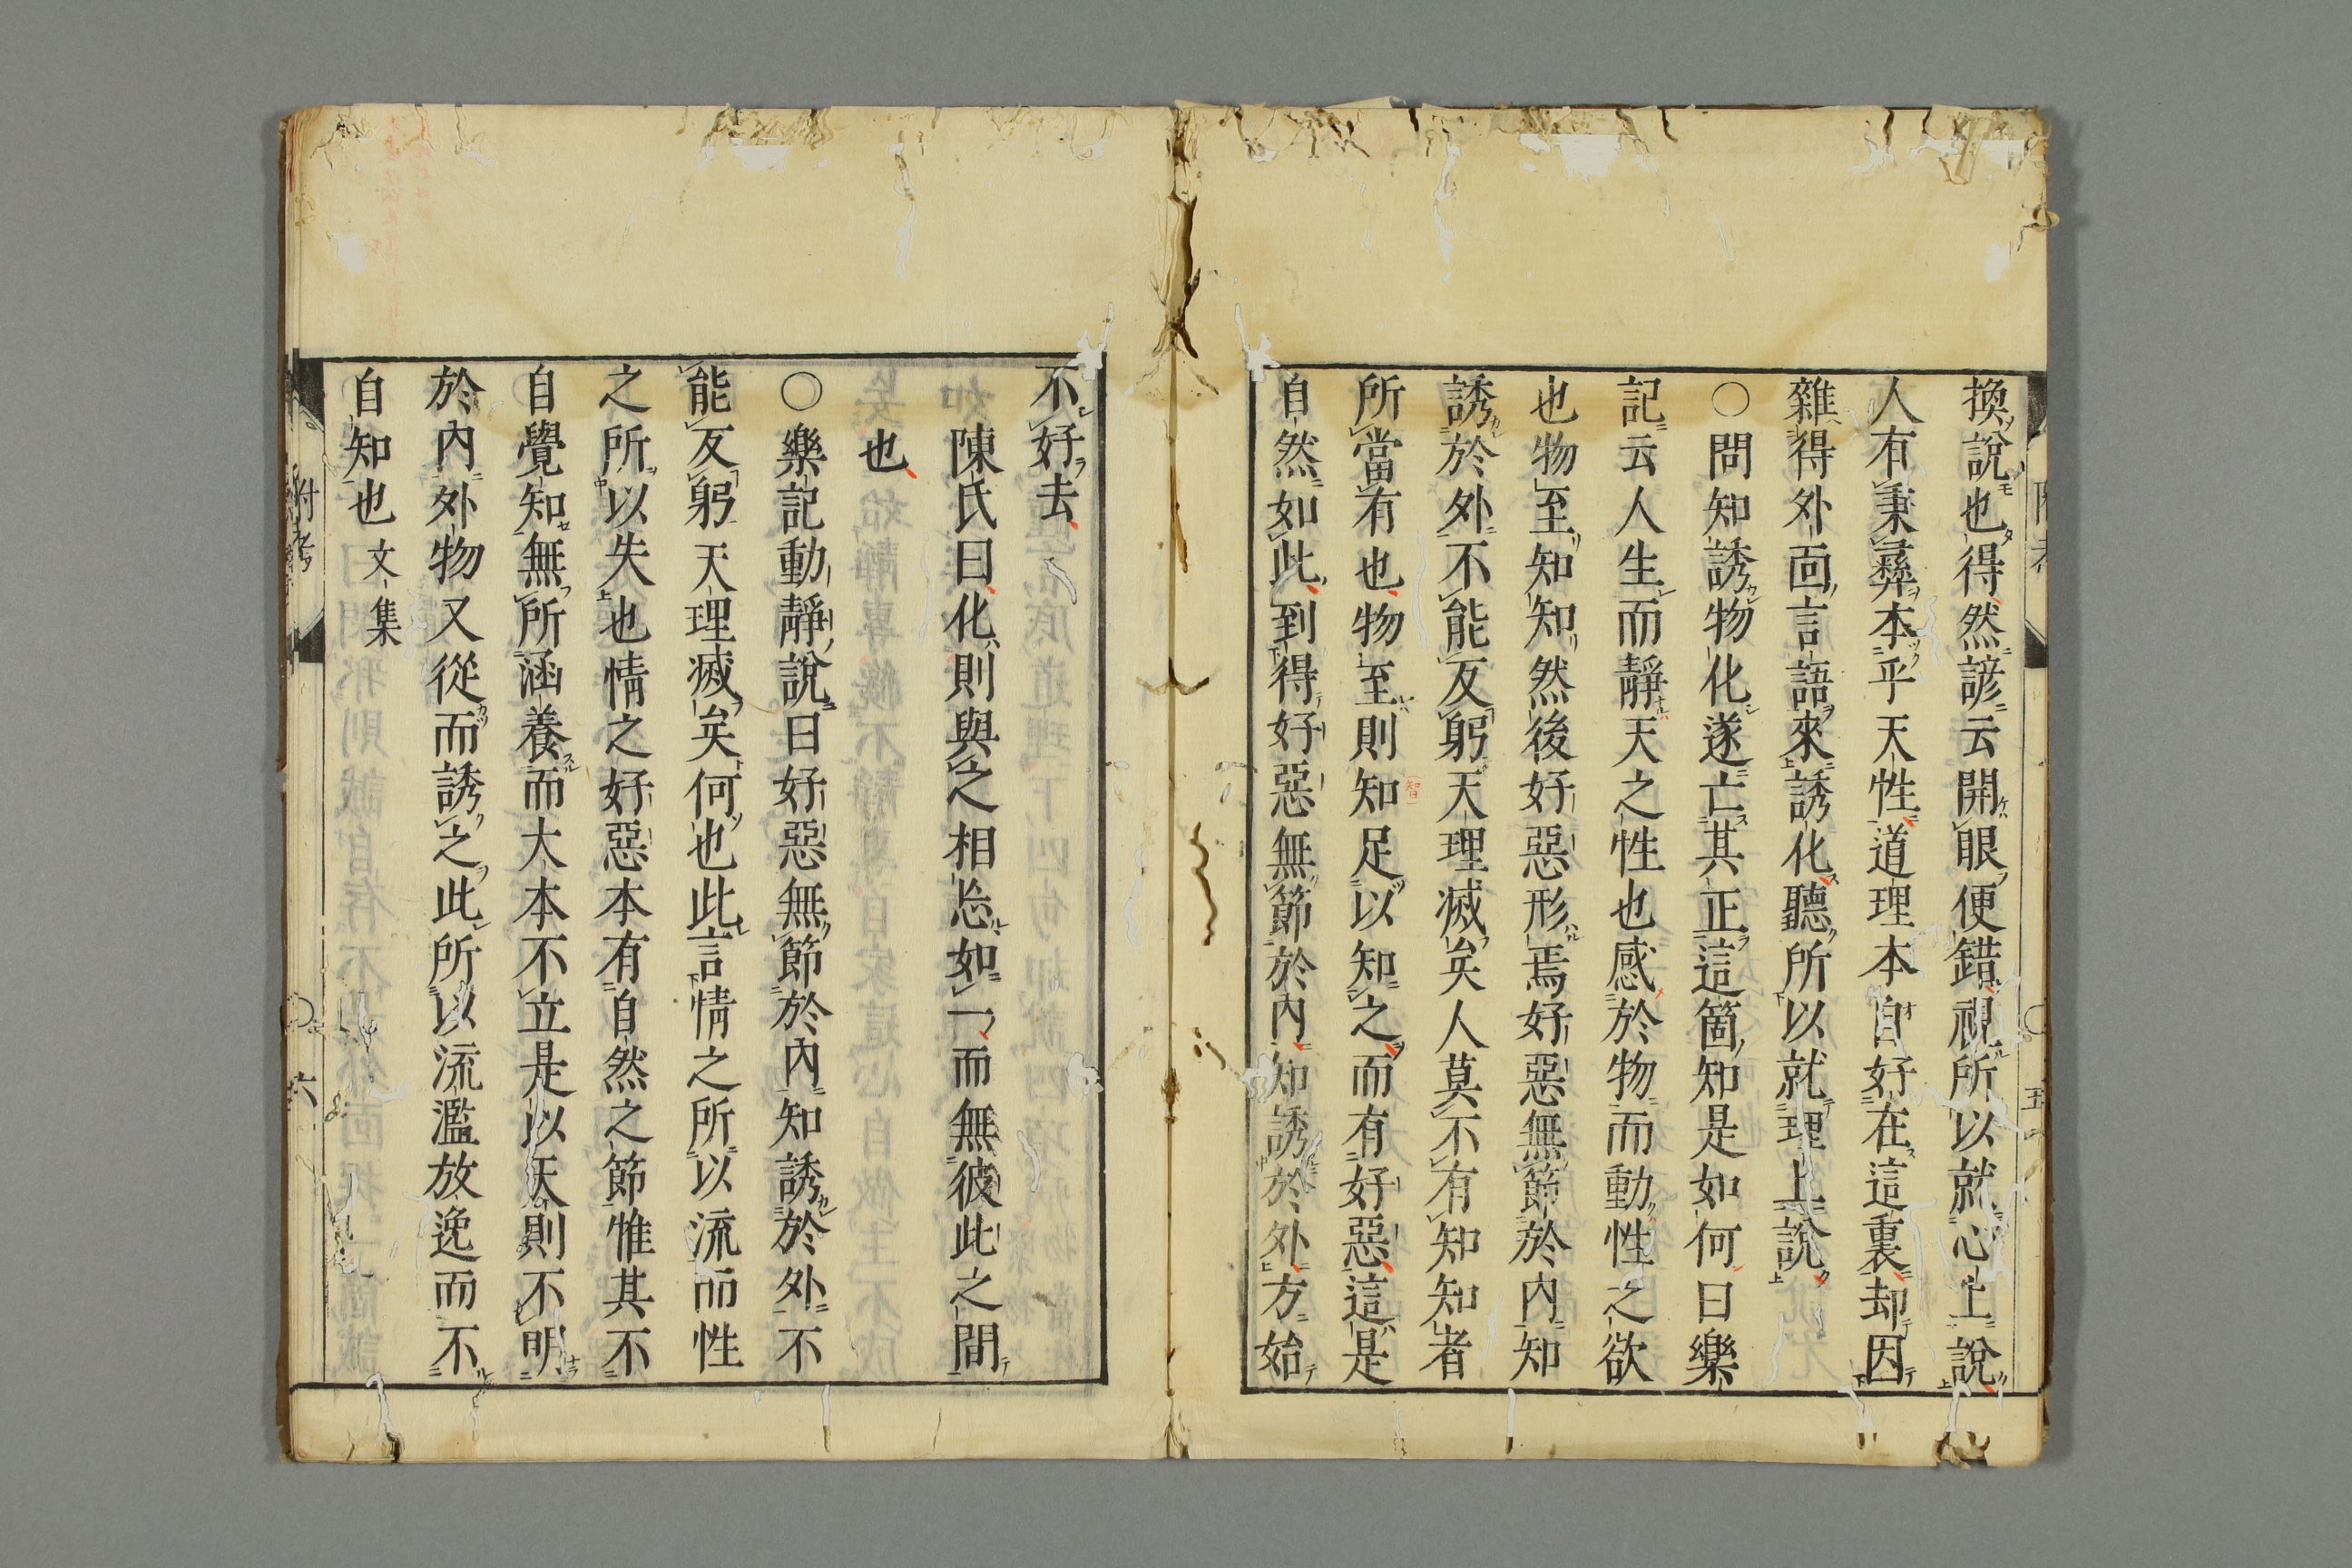 換說也得然諺云開眼便錯視所以就心上說
人有秉彝本乎天性道理本自好在這裏却因
雜得外面言語來誘化聽所以就理上說
○問知誘物化遂亡其正這箇知是如何曰樂
記云人生而靜天之性也感於物而動性之欲
也物至知知然後好惡形焉好惡無節於內知
誘於外不能反躬天理滅矣人莫不有知知者
所當有也物至則知足以知之而有好惡這是
自然如此到得好惡無節於內知誘於外方始
不好去
陳氏曰化則與之相忘如一而無彼此之間
也
○樂記動靜說曰好惡無節於內知誘於外不
能反躬天理滅矣何也此言情之所以流而性
之所以失也情之好惡本有自然之節惟其不
自覺知無所涵養而大本不立是以天則不明
於內外物又從而誘之此所以流濫放逸而不
自知也 文集
附考
六